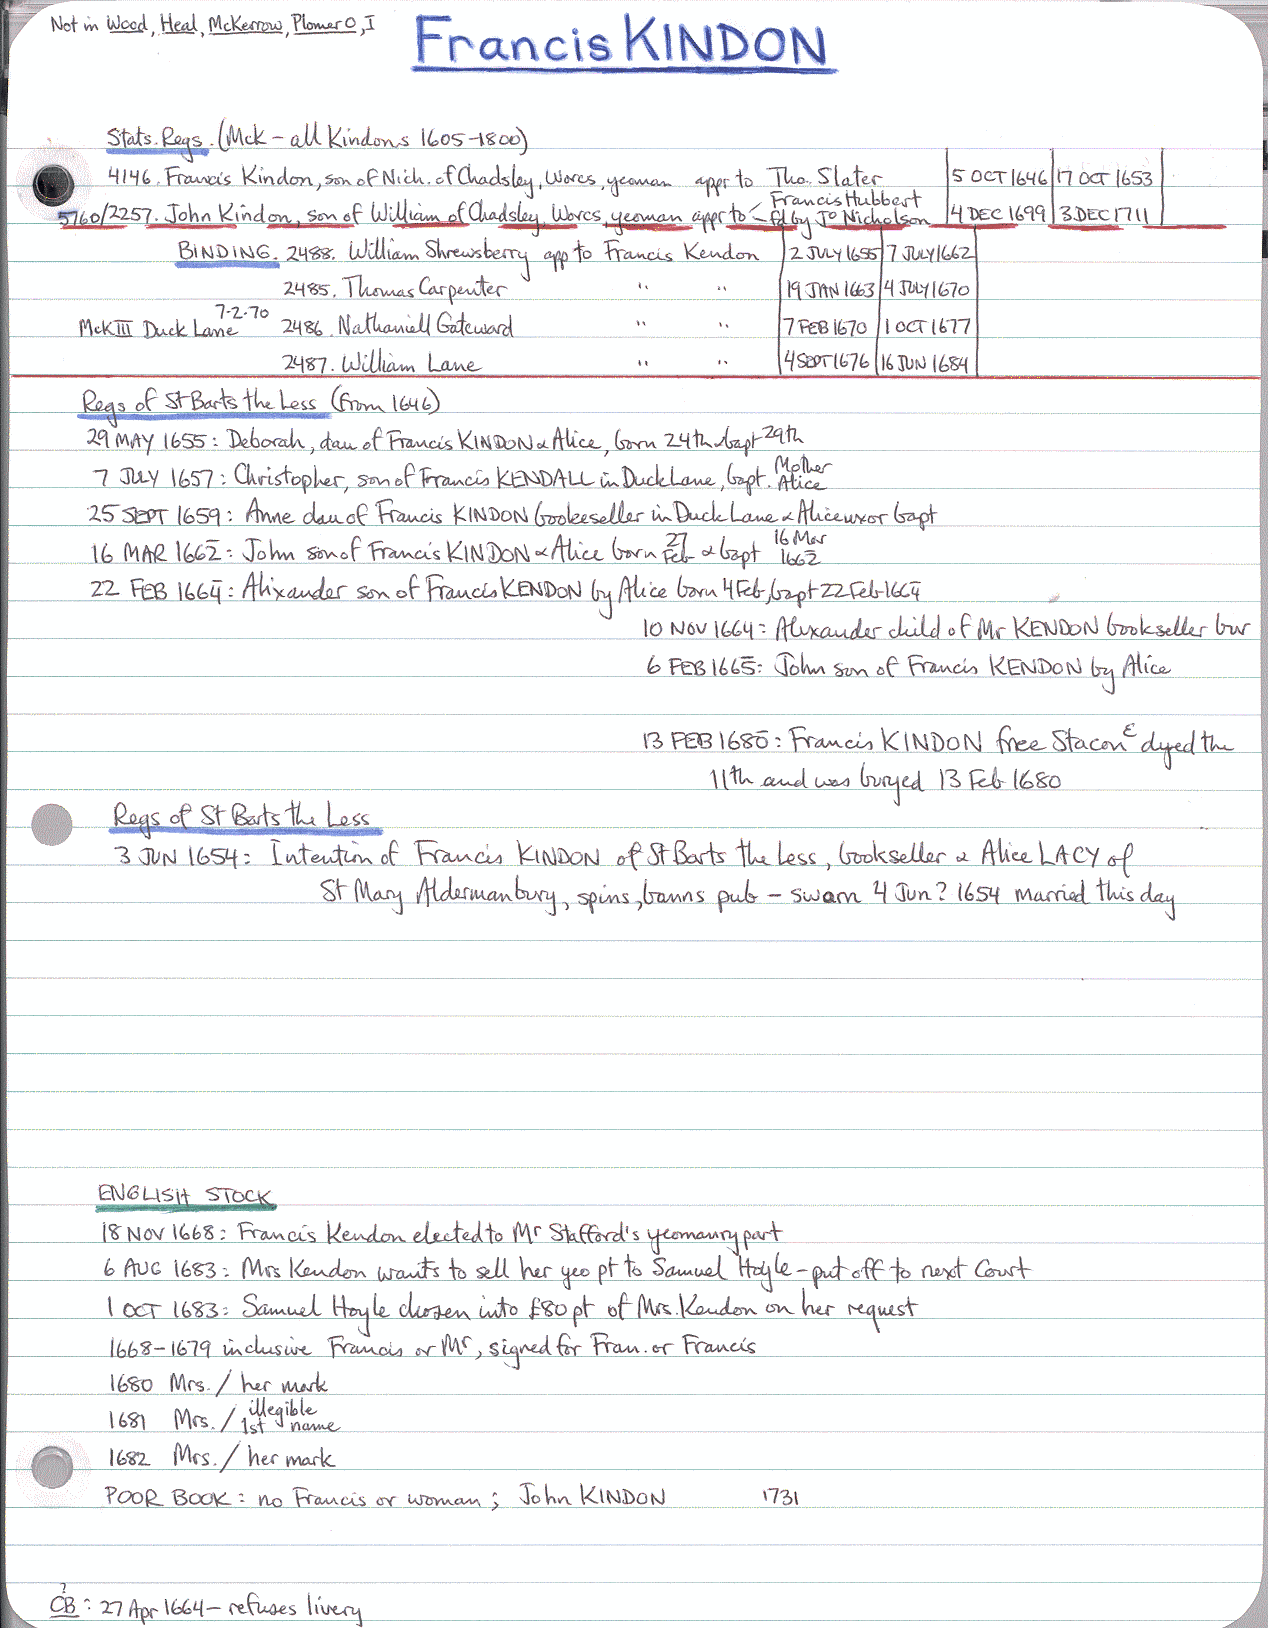 Not in Wood, Heal, McKerrow, Plomer O, I
Francis KINDON
Stats. Regs. (McK – all Kindons 1605–1800)
4146. Francis Kindon, son of Nich. of Chadsley, Worcs, yeoman appr to Tho. Slater 5 OCT 1646 17 OCT 1653
5760/2257. John Kindon, son of William of Chadsley, Worcs, yeoman appr to – Francis Hubbert fd by Jo Nicholson 4 DEC 1699 3 DEC 1711
BINDING. 2488. William Shrewsberry app to Francis Kendon 2 JULY 1655 7 JULY 1662
2485. Thomas Carpenter " " 19 JAN 1663 4 JULY 1670
McK III Duck Lane 7-2-70 2486. Nathaniell Gateward " " 7 FEB 1670 1 OCT 1677
2487. William Lane " " 4 SEPT 1676 16 JUN 1684
Regs of St Barts the Less (from 1646)
29 MAY 1655: Deborah, dau of Francis KINDON & Alice, born 24th & bapt 29th
7 JULY 1657: Christopher, son of Francis KENDALL in Duck Lane, bapt. Mother Alice
25 SEPT 1659: Anne dau of Francis KINDON bookeseller in Duck Lane & Alice uxor bapt
16 MAR 1662: John son of Francis KINDON & Alice born 27 Feb & bapt 16 Mar 1662
22 FEB 1664: Alixander son of Francis KENDON by Alice born 4 Feb, bapt 22 Feb 1664
10 NOV 1664: Alexander child of Mr KENDON bookseller bur
6 FEB 1665: John son of Francis KENDON by Alice
13 FEB 1680: Francis KINDON free Stacon^e dyed the
11th and was buryed 13 Feb 1680
Regs of St Barts the Less
3 JUN 1654: Intention of Francis KINDON of St Barts the Less, bookseller & Alice LACY of
St Mary Aldermanbury, spins, banns pub – sworn 4 Jun? 1654 married this day
ENGLISH STOCK
18 NOV 1668: Francis Kendon elected to Mr Stafford's yeomanry part
6 AUG 1683: Mrs Kendon wants to sell her yeo pt to Samuel Hoyle – put off to next Court
1 OCT 1683: Samuel Hoyle chosen into £80 pt of Mrs. Kendon on her request
1668–1679 inclusive Francis or Mr, signed for Fran. or Francis
1680 Mrs. / her mark
1681 Mrs. / illegible 1st name
1682 Mrs. / her mark
POOR BOOK: no Francis or woman; John KINDON 1731
?
CB: 27 Apr 1664 – refuses livery